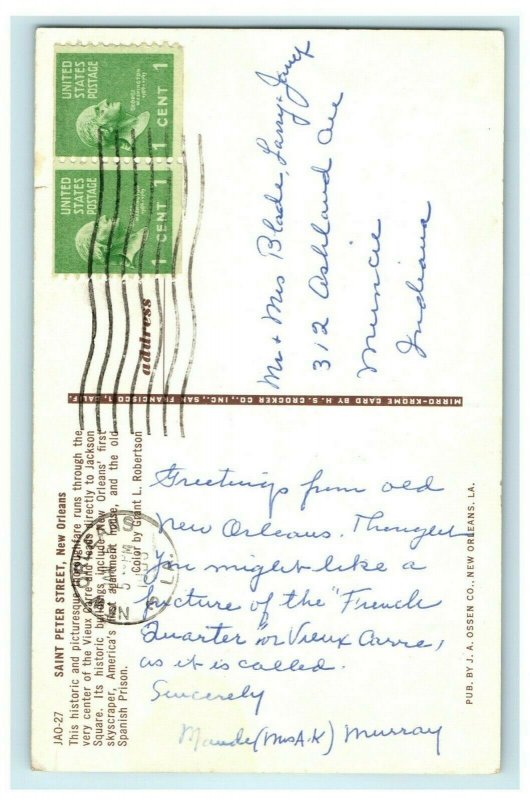 UNITED
STATES
POSTAGE
GEORGE
WASHINGTON
1789-1797
1 CENT 1
UNITED
STATES
POSTAGE
1 CENT 1
address
Mr + Mrs Blade, Larry +
312 Ashland Ave
Muncie
Indiana
MIRRO-KROME CARD BY H. S. CROCKER CO., INC., SAN FRANCISCO, CALIF.
JAO-27 SAINT PETER STREET, New Orleans
This historic and picturesque thoroughfare runs through the
very center of the Vieux Carre and leads directly to Jackson
Square. Its historic buildings include New Orleans' first
skyscraper, America's first apartment house, and the old
Spanish Prison.
Color by Grant L. Robertson
Greetings from old
New Orleans. Thought
you might like a
picture of the "French
Quarter" or Vieux Carre,
as it is called.
Sincerely
Maude (Mrs A.K) Murray
PUB. BY J. A. OSSEN CO., NEW ORLEANS, LA.